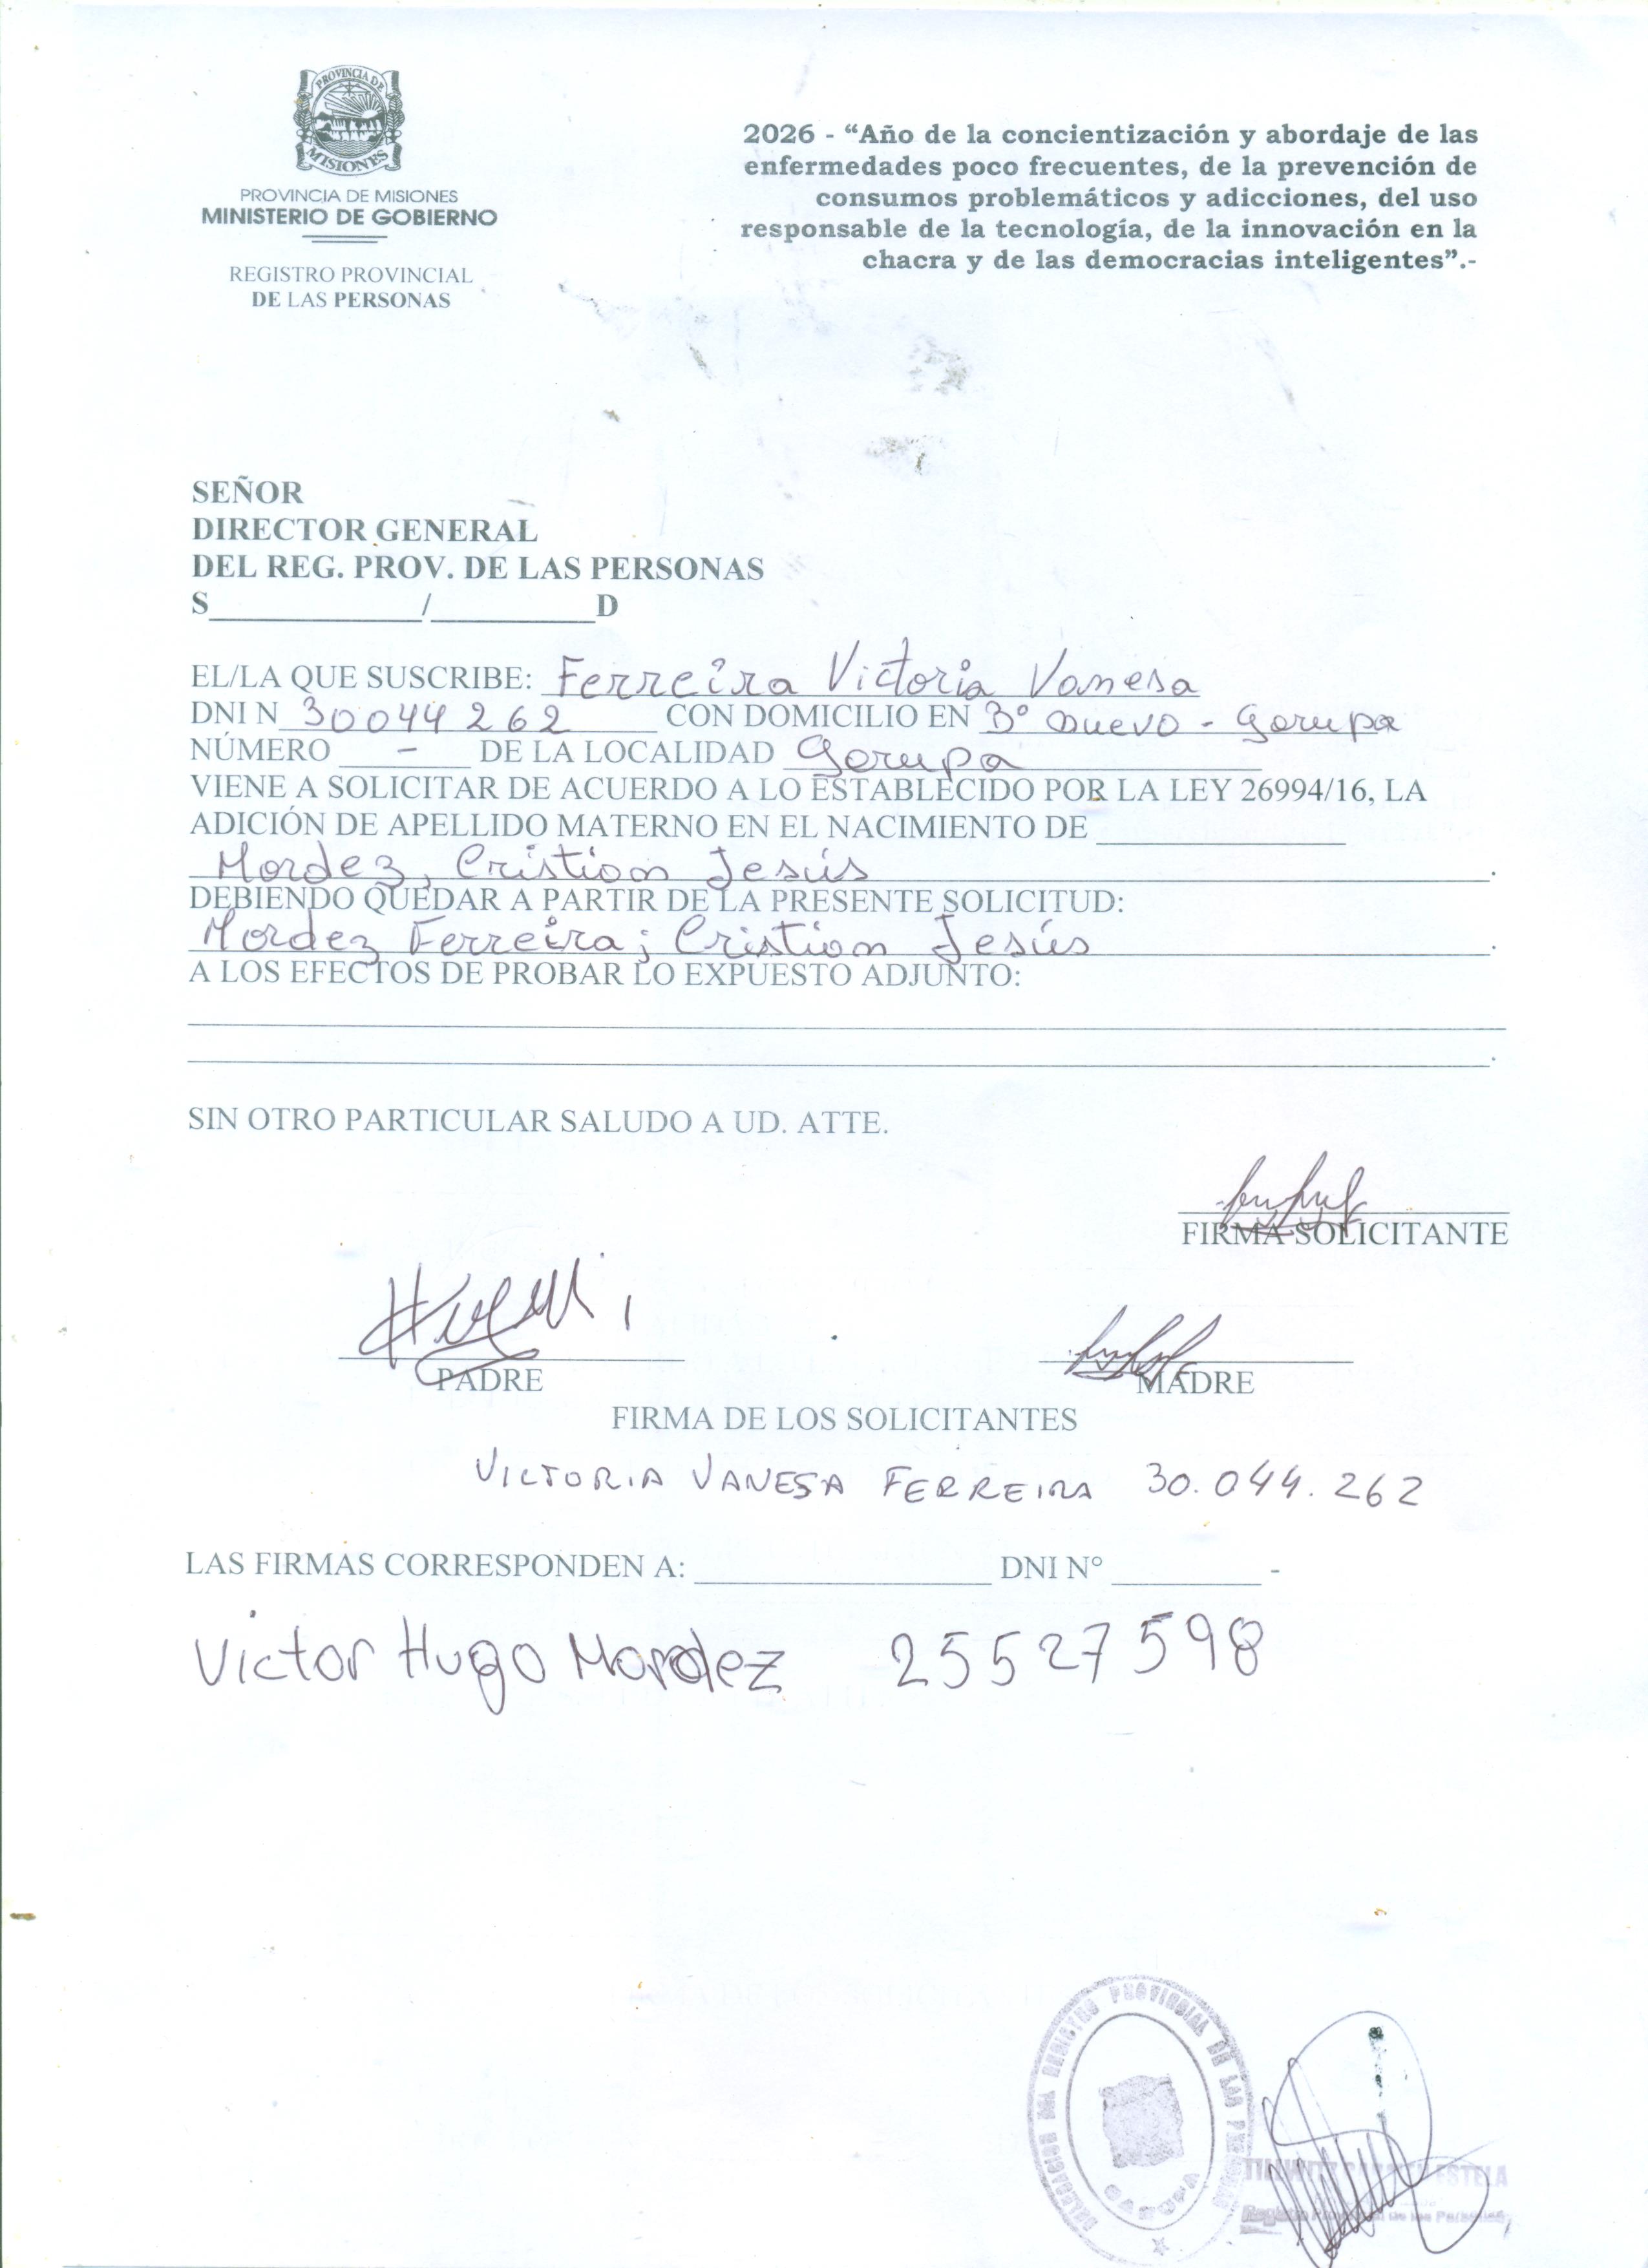 PROVINCIA DE
MISIONES
PROVINCIA DE MISIONES
MINISTERIO DE GOBIERNO
REGISTRO PROVINCIAL
DE LAS PERSONAS
2026 - “Año de la concientización y abordaje de las
enfermedades poco frecuentes, de la prevención de
consumos problemáticos y adicciones, del uso
responsable de la tecnología, de la innovación en la
chacra y de las democracias inteligentes”.-
SEÑOR
DIRECTOR GENERAL
DEL REG. PROV. DE LAS PERSONAS
S____________/__________D
EL/LA QUE SUSCRIBE: Ferreira Victoria Vanesa
DNI N 30044262 CON DOMICILIO EN Bº Nuevo - Garupa
NÚMERO - DE LA LOCALIDAD Garupa
VIENE A SOLICITAR DE ACUERDO A LO ESTABLECIDO POR LA LEY 26994/16, LA
ADICIÓN DE APELLIDO MATERNO EN EL NACIMIENTO DE
Mordez, Cristian Jesús.
DEBIENDO QUEDAR A PARTIR DE LA PRESENTE SOLICITUD:
Mordez Ferreira; Cristian Jesús.
A LOS EFECTOS DE PROBAR LO EXPUESTO ADJUNTO:
SIN OTRO PARTICULAR SALUDO A UD. ATTE.
FIRMA SOLICITANTE
PADRE MADRE
FIRMA DE LOS SOLICITANTES
VICTORIA VANESA FERREIRA 30.044.262
LAS FIRMAS CORRESPONDEN A: __________________ DNI N° _________ -
Victor Hugo Mordez 25527598
DELEGACION DEL REGISTRO PROVINCIAL DE LAS PERSONAS
GARUPA
ESTELA
Registro Provincial de las Personas